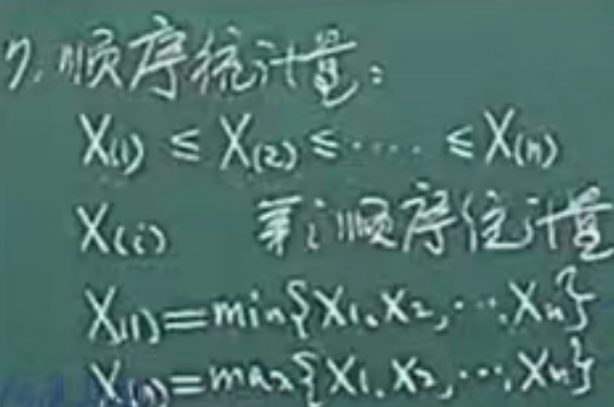 7. 顺序统计量：
X(1) ≤ X(2) ≤ ···· ≤ X(n)
X(i) 第i顺序统计量
X(1)=min{X1, X2, ···, Xn}
X(n)=max{X1, X2, ···, Xn}